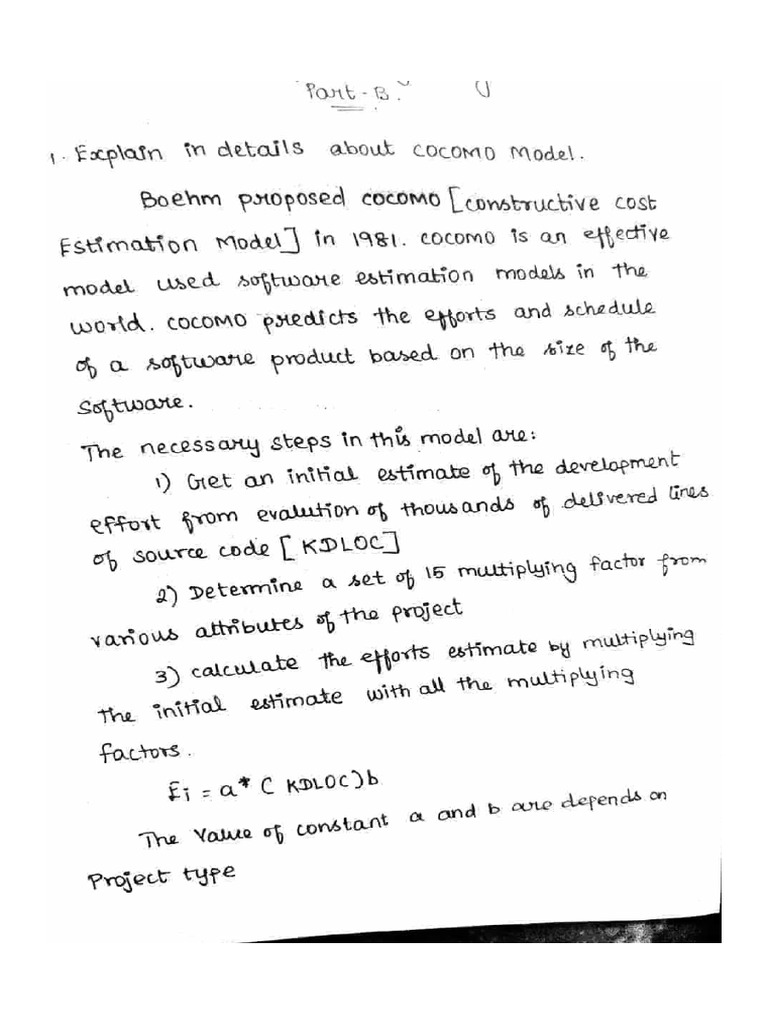 "Part-B."
1. Explain in details about COCOMO Model.
Boehm proposed COCOMO [constructive cost
Estimation Model] in 1981. COCOMO is an effective
model used software estimation models in the
world. COCOMO predicts the efforts and schedule
of a software product based on the size of the
Software.
The necessary steps in this model are:
1) Get an initial estimate of the development
effort from evalution of thousands of delivered lines
of source code [KDLOC]
2) Determine a set of 15 multiplying factor from
various attributes of the project
3) calculate the efforts estimate by multiplying
the initial estimate with all the multiplying
factors.
Ei = a* (KDLOC)b
The Value of constant a and b are depends on
Project type